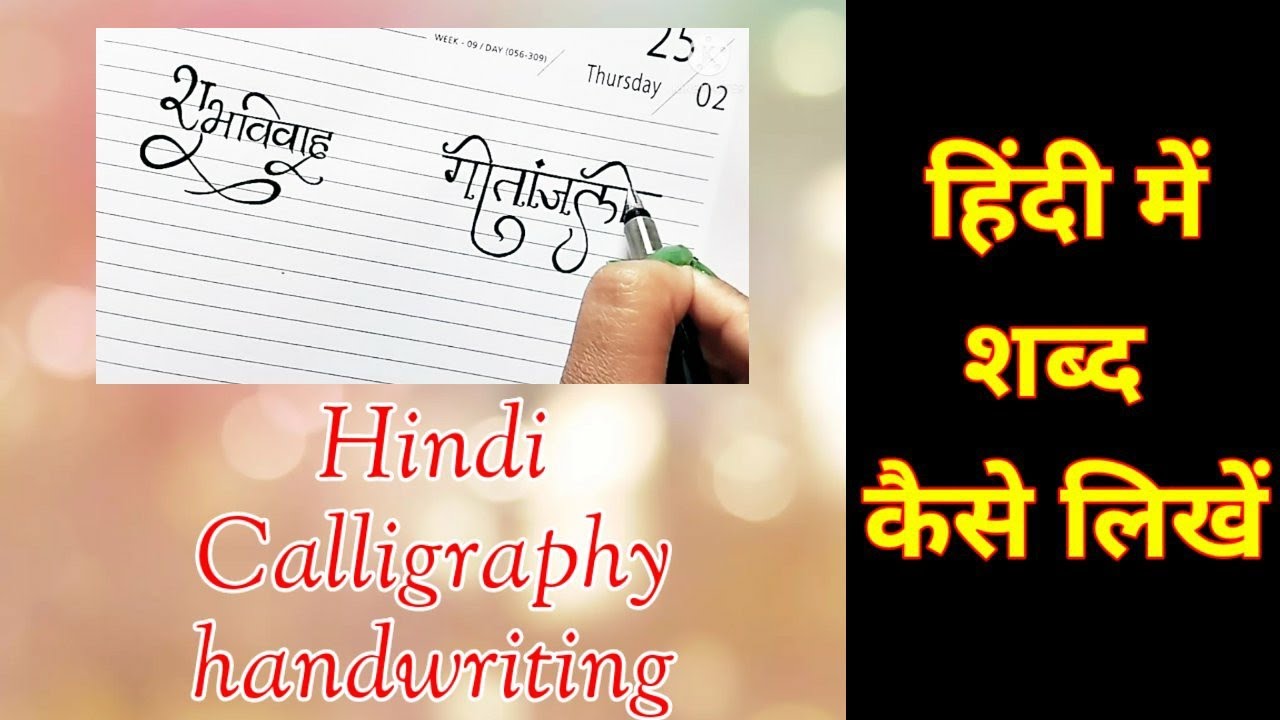 WEEK - 09 / DAY (056-309)
25
Thursday
02
शुभविवाह
गीतांजली
Hindi
Calligraphy
handwriting
हिंदी में
शब्द
कैसे लिखें